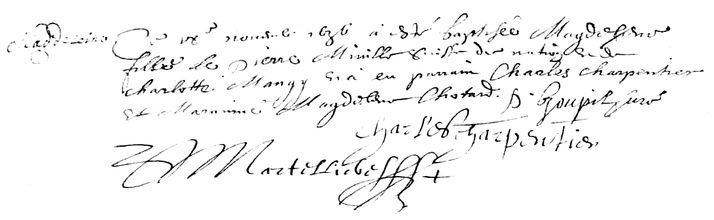 Magdeleine
Ce 18e novembre 1636 a esté baptisée Magdeleine
fille de Pierre Miville Suisse de nation & de
Charlotte Maugy & a eu parrain Charles Charpentier
et Marainne Magdelene Chotard. P. Goupil curé
Charles Charpentier
Martel